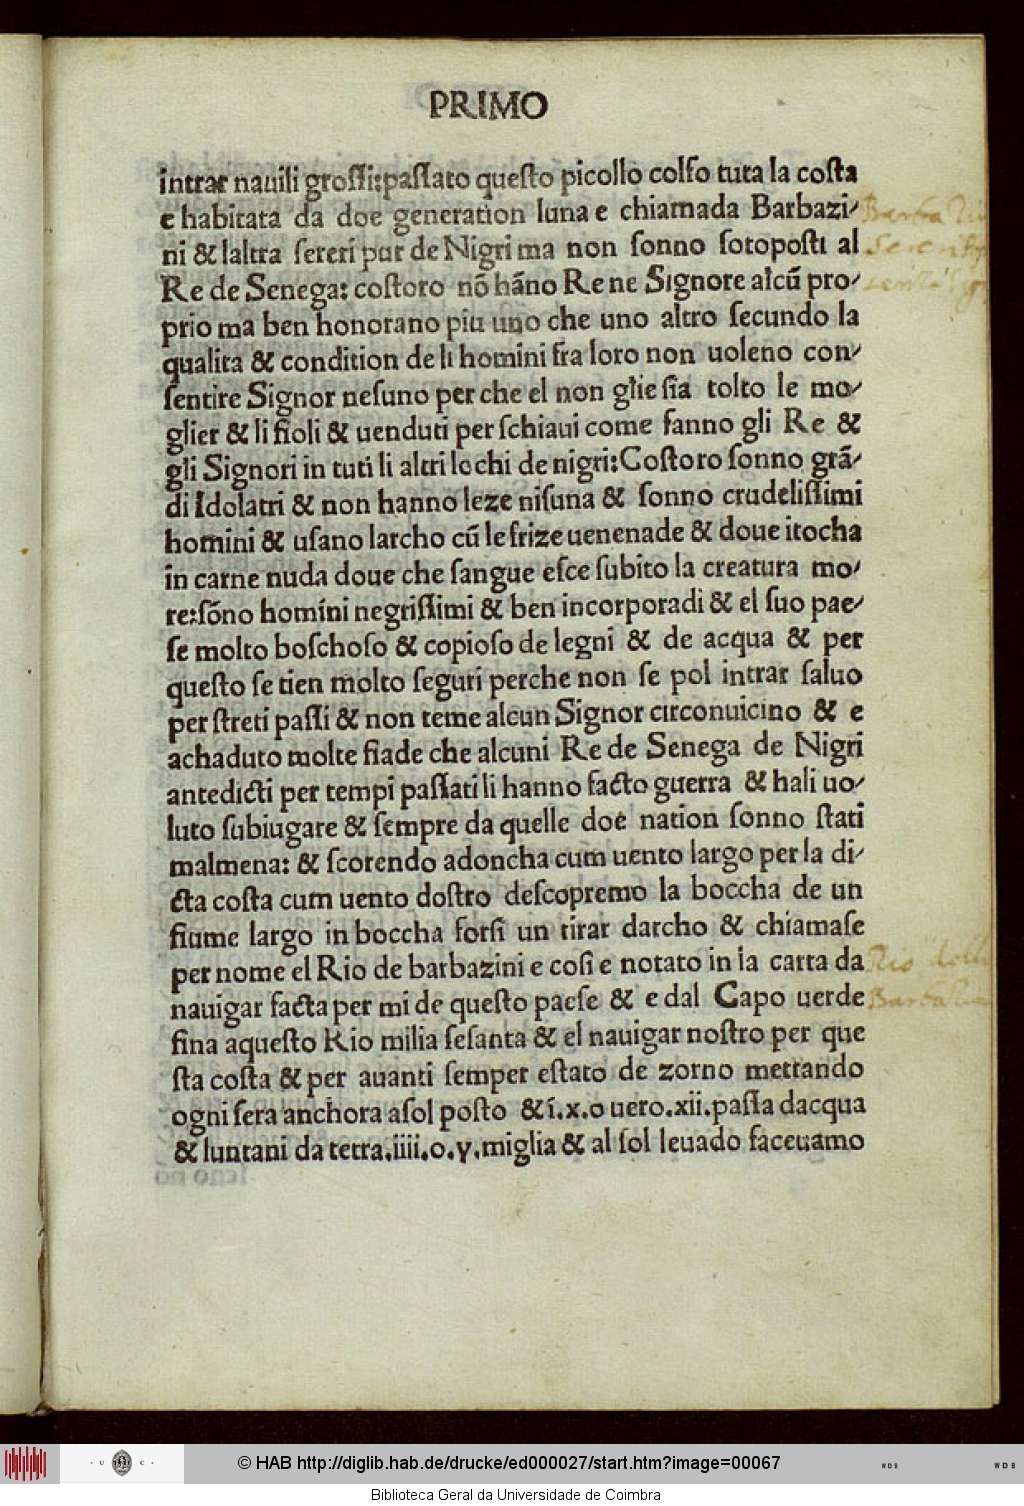 PRIMO
intrar nauili grossi:passato questo picollo colfo tuta la costa
e habitata da doe generation luna e chiamada Barbazi/
ni & laltra sereri pur de Nigri ma non sonno sotoposti al
Re de Senega: costoro nõ hãno Re ne Signore alcũ pro/
prio ma ben honorano piu uno che uno altro secundo la
qualita & condition de li homini fra loro non uoleno con/
sentire Signor nesuno per che el non glie sia tolto le mo/
glier & li fioli & uenduti per schiaui come fanno gli Re &
gli Signori in tuti li altri lochi de nigri:Costoro sonno grã/
di Idolatri & non hanno leze nisuna & sonno crudelissimi
homini & usano larcho cũ le frize uenenade & doue itocha
in carne nuda doue che sangue esce subito la creatura mo/
re:sõno homini negrissimi & ben incorporadi & el suo pae/
se molto boschoso & copioso de legni & de acqua & per
questo se tien molto seguri perche non se pol intrar saluo
per streti passi & non teme alcun Signor circonuicino & e
achaduto molte fiade che alcuni Re de Senega de Nigri
antedicti per tempi passati li hanno facto guerra & hali uo/
luto subiugare & sempre da quelle doe nation sonno stati
malmena: & scorendo adoncha cum uento largo per la di/
cta costa cum uento dostro descopremo la boccha de un
fiume largo in boccha forsi un tirar darcho & chiamase
per nome el Rio de barbazini e cosi e notato in la carta da
nauigar facta per mi de questo paese & e dal Capo uerde
fina aquesto Rio milia sesanta & el nauigar nostro per que
sta costa & per auanti semper estato de zorno mettando
ogni sera anchora asol posto & i.x.o uero.xii.passa dacqua
& luntani da terra.iiii.o.v.miglia & al sol leuado faceuamo
Rio delli
© HAB http://diglib.hab.de/drucke/ed000027/start.htm?image=00067
· U C ·
WDS
WDS
Biblioteca Geral da Universidade de Coimbra